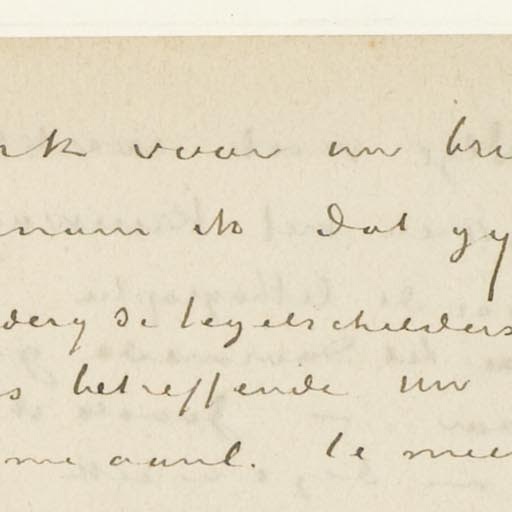 rk voor uw bri
nam ik dat gij
derg de tegelschilders
s betreffende uw
me aanl. te mee